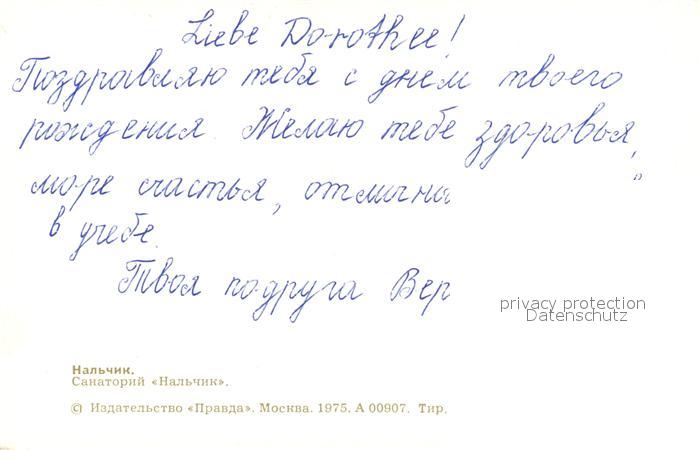 Liebe Dorothee!
Поздравляю тебя с днём твоего
рождения. Желаю тебе здоровья,
море счастья,
в учебе.
Твоя подруга
privacy protection
Datenschutz
Нальчик.
Санаторий «Нальчик».
© Издательство «Правда». Москва. 1975. А 00907. Тир.